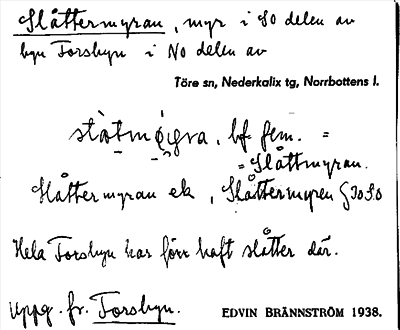 Slåttermyran, myr i SO delen av
byn Forsbyn i NO delen av
Töre sn, Nederkalix tg, Norrbottens l.
bf fem. =
= Slåttmyran.
Slåttermyran ek , Slåttermyren
Hela Forsbyn har förr haft slåtter där.
Uppg. fr. Forsbyn.
EDVIN BRÄNNSTRÖM 1938.